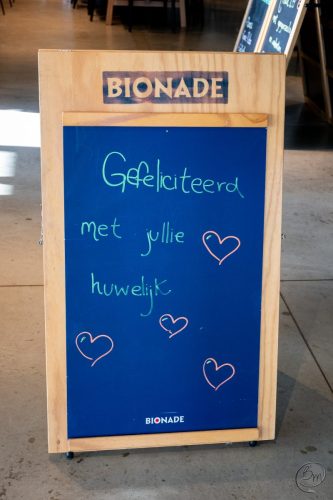 BIONADE
Gefeliciteerd
met jullie
huwelijk
BIONADE